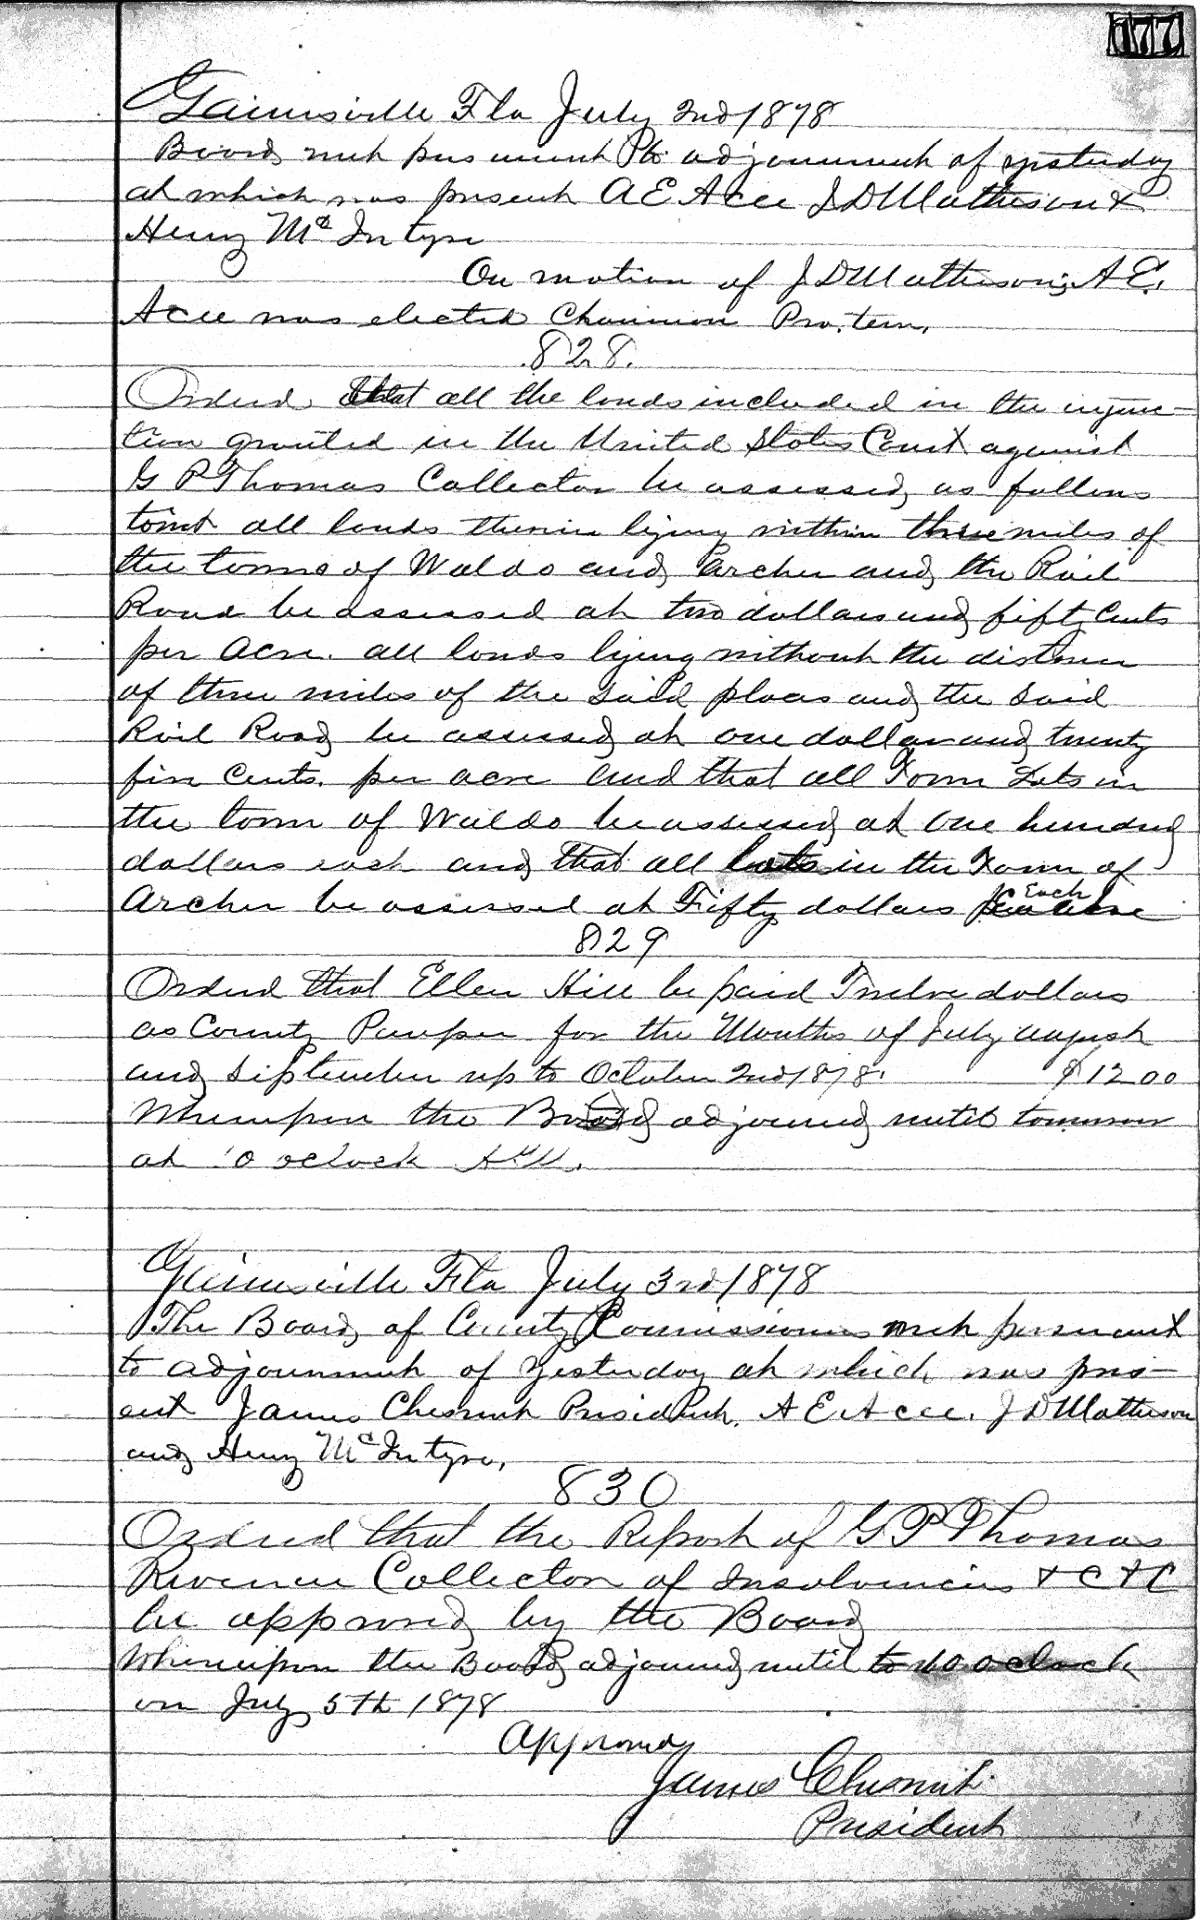 177
Gainesville Fla July 2nd 1878
Board met pursuant to adjournment of yesterday
at which was present A E Acee J D Matheson &
Henry McIntyre
On motion of J D Matheson, A E.
Acee was elected Chairman Pro. tem.
828.
Ordered that all the lands included in the injunc-
tion granted in the United States Court against
G P Thomas Collector be assessed, as follows
towit all lands therein lying within three miles of
the towns of Waldo and Archer and the Rail
Road be assessed at two dollars and fifty Cents
per Acre. all lands lying without the distance
of three miles of the said places and the said
Rail Road be assessed at one dollar and twenty
five Cents. per acre and that all Town Lots in
the town of Waldo be assessed at One hundred
dollars each and that all Lots in the Town of
Archer be assessed at Fifty dollars Each
829
Ordered that Ellen Hill be paid Twelve dollars
as County Pauper for the Months of July August
and September up to October 2nd 1878. $12 00
Whereupon the Board adjourned until tomorrow
at 10 oclock A.M.
Gainesville Fla July 3rd 1878
The Board of County Commissioners met pursuant
to adjournment of Yesterday at which was pres-
ent James Chesnut President. A E Acee. J D Matheson
and Henry McIntyre,
830
Ordered that the Report of G P Thomas
Revenue Collector of Insolvencies & C & C
be approved by the Board
Whereupon the Board adjourned until to 10 oclock
on July 5th 1878
Approved
James Chesnut
President